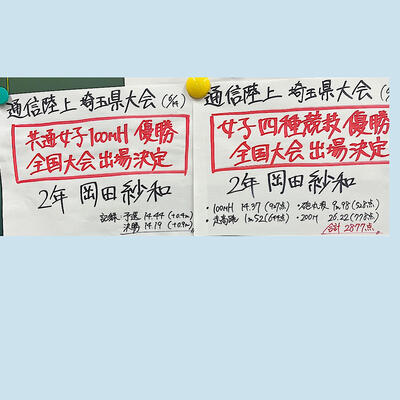 通信陸上 埼玉県大会
共通女子100mH 優勝
全国大会出場決定
2年 岡田紗和
記録:予選 14.44 (+0.4m)
決勝 14.19 (+0.9m)
通信陸上 埼玉県大会
女子四種競技 優勝
全国大会出場決定
2年 岡田紗和
・100mH 14.37 (907点) ・砲丸投 9m98 (528点)
・走高跳 1m52 (644点) ・200m 26.22 (778点)
合計 2877点